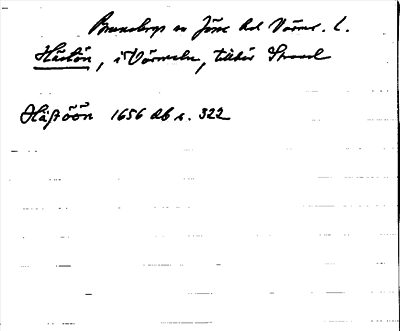 Brunskogs sn Jösse hd Värml. l.
Hästön, i Värmeln, tillhör Strand
Häst öön 1656 db s. 322